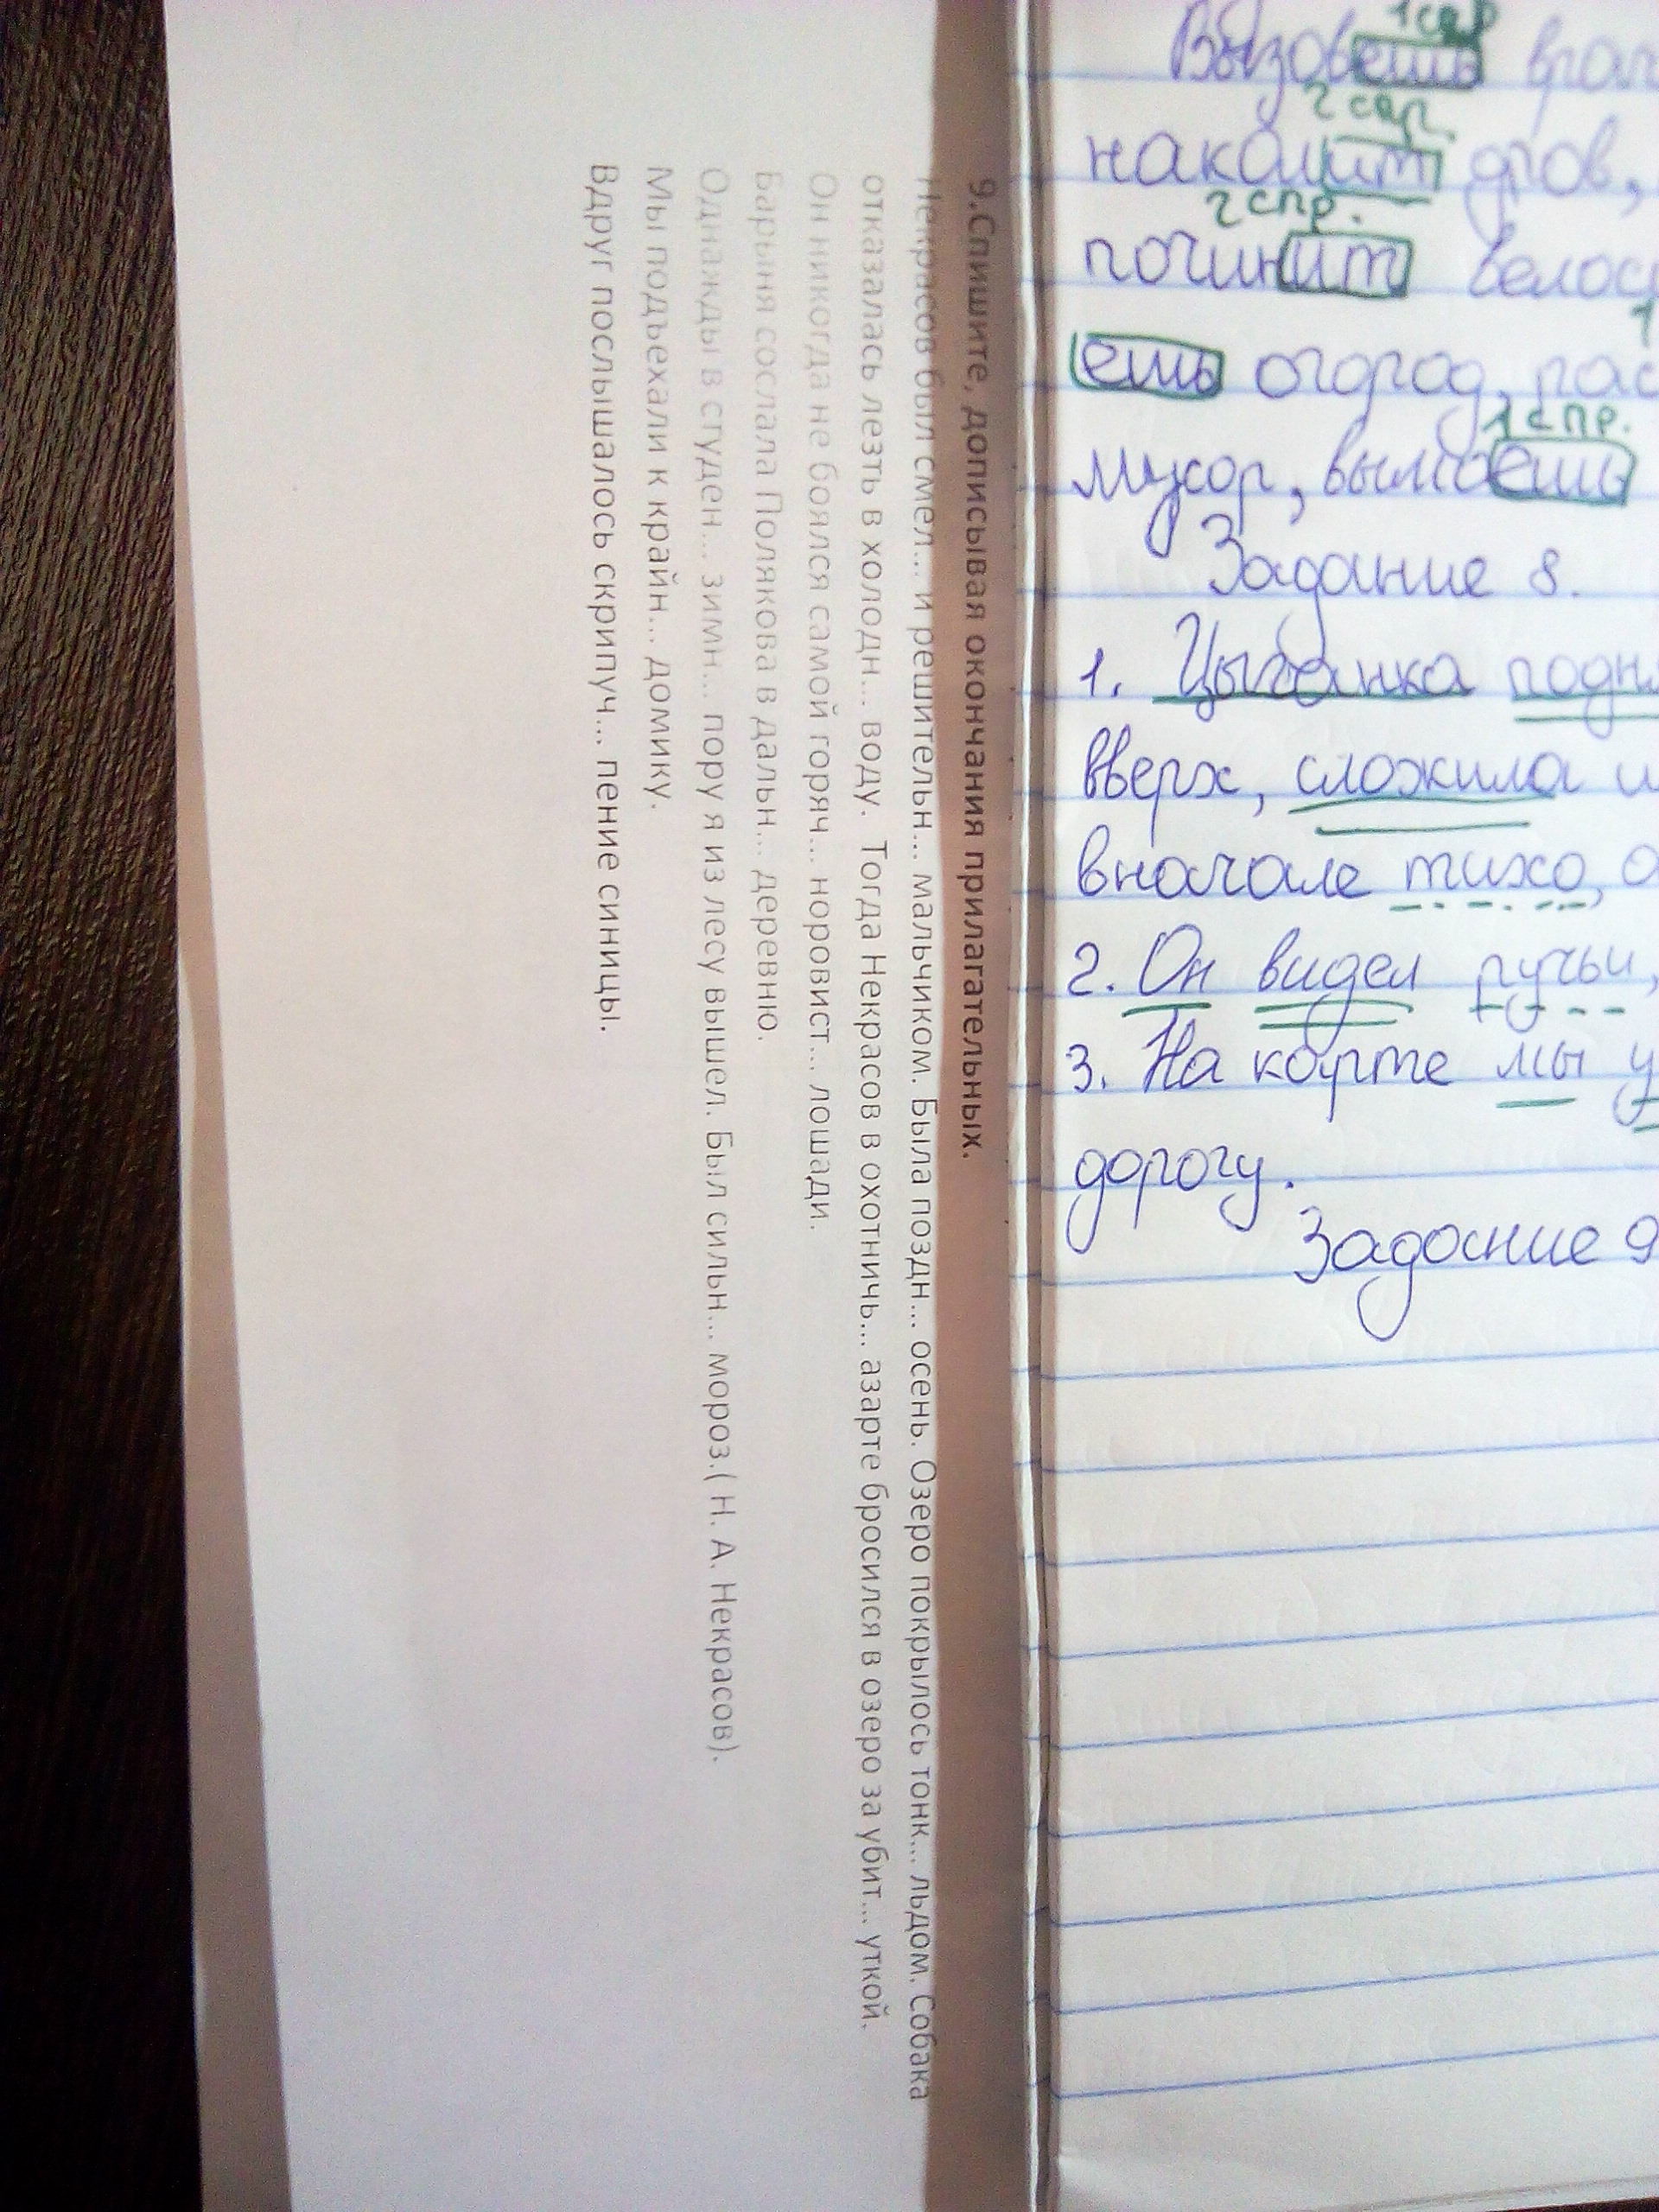 9.Спишите, дописывая окончания прилагательных.
Некрасов был смел... и решительн... мальчиком. Была поздн... осень. Озеро покрылось тонк... льдом. Собака
отказалась лезть в холодн... воду. Тогда Некрасов в охотничь... азарте бросился в озеро за убит... уткой.
Он никогда не боялся самой горяч... норовист... лошади.
Барыня сослала Полякова в дальн... деревню.
Однажды в студен... зимн... пору я из лесу вышел. Был сильн... мороз.( Н. А. Некрасов).
Мы подъехали к крайн... домику.
Вдруг послышалось скрипуч... пение синицы.
1 спр
Вызовешь
2 спр.
наколит дров,
2 спр.
починит
1
ешь огород,
1 спр.
мусор, вымоешь
Задание 8.
1. Цыганка
вверх, сложила
вначале тихо,
2. Он видел ручьи,
3. На карте мы у
дорогу.
Задание 9